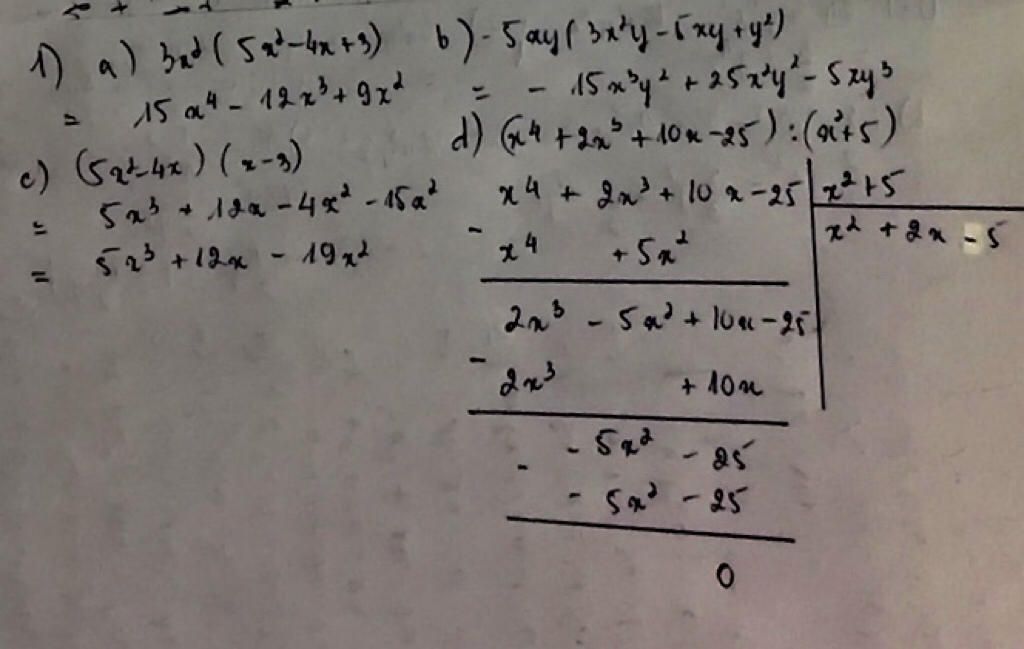 1) a) 3x²(5x²-4x+3)
= 15x⁴ - 12x³ + 9x²
b) -5xy(3x²y - 5xy + y²)
= - 15x³y² + 25x²y² - 5xy³
c) (5x²-4x)(x-3)
= 5x³ + 12x - 4x² - 15x²
= 5x³ + 12x - 19x²
d) (x⁴ + 2x³ + 10x - 25) : (x²+5)
x⁴ + 2x³ + 10x - 25 | x² + 5
- x⁴ + 5x² | x² + 2x - 5
2x³ - 5x² + 10x - 25
- 2x³ + 10x
- 5x² - 25
- - 5x² - 25
0